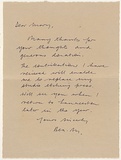 Dear Mary,
Many thanks for
your thoughts and
generous donation.
The contributions I have
received will enable
me to replace my
studio etching press
will
when I
return to
later in the year
Yours sincerely